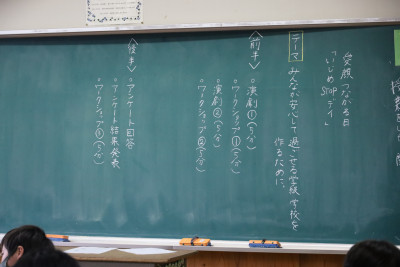 笑顔つながる日
「いじめSTOPデイ」
テーマ みんなが安心して過ごせる学級、学校を
作るために。
〈前半〉
○演劇①(5分)
○ワークショップ①(5分)
○演劇②(5分)
○ワークショップ②(5分)
〈後半〉
○アンケート回答
○アンケート結果発表
○ワークショップ③(5分)